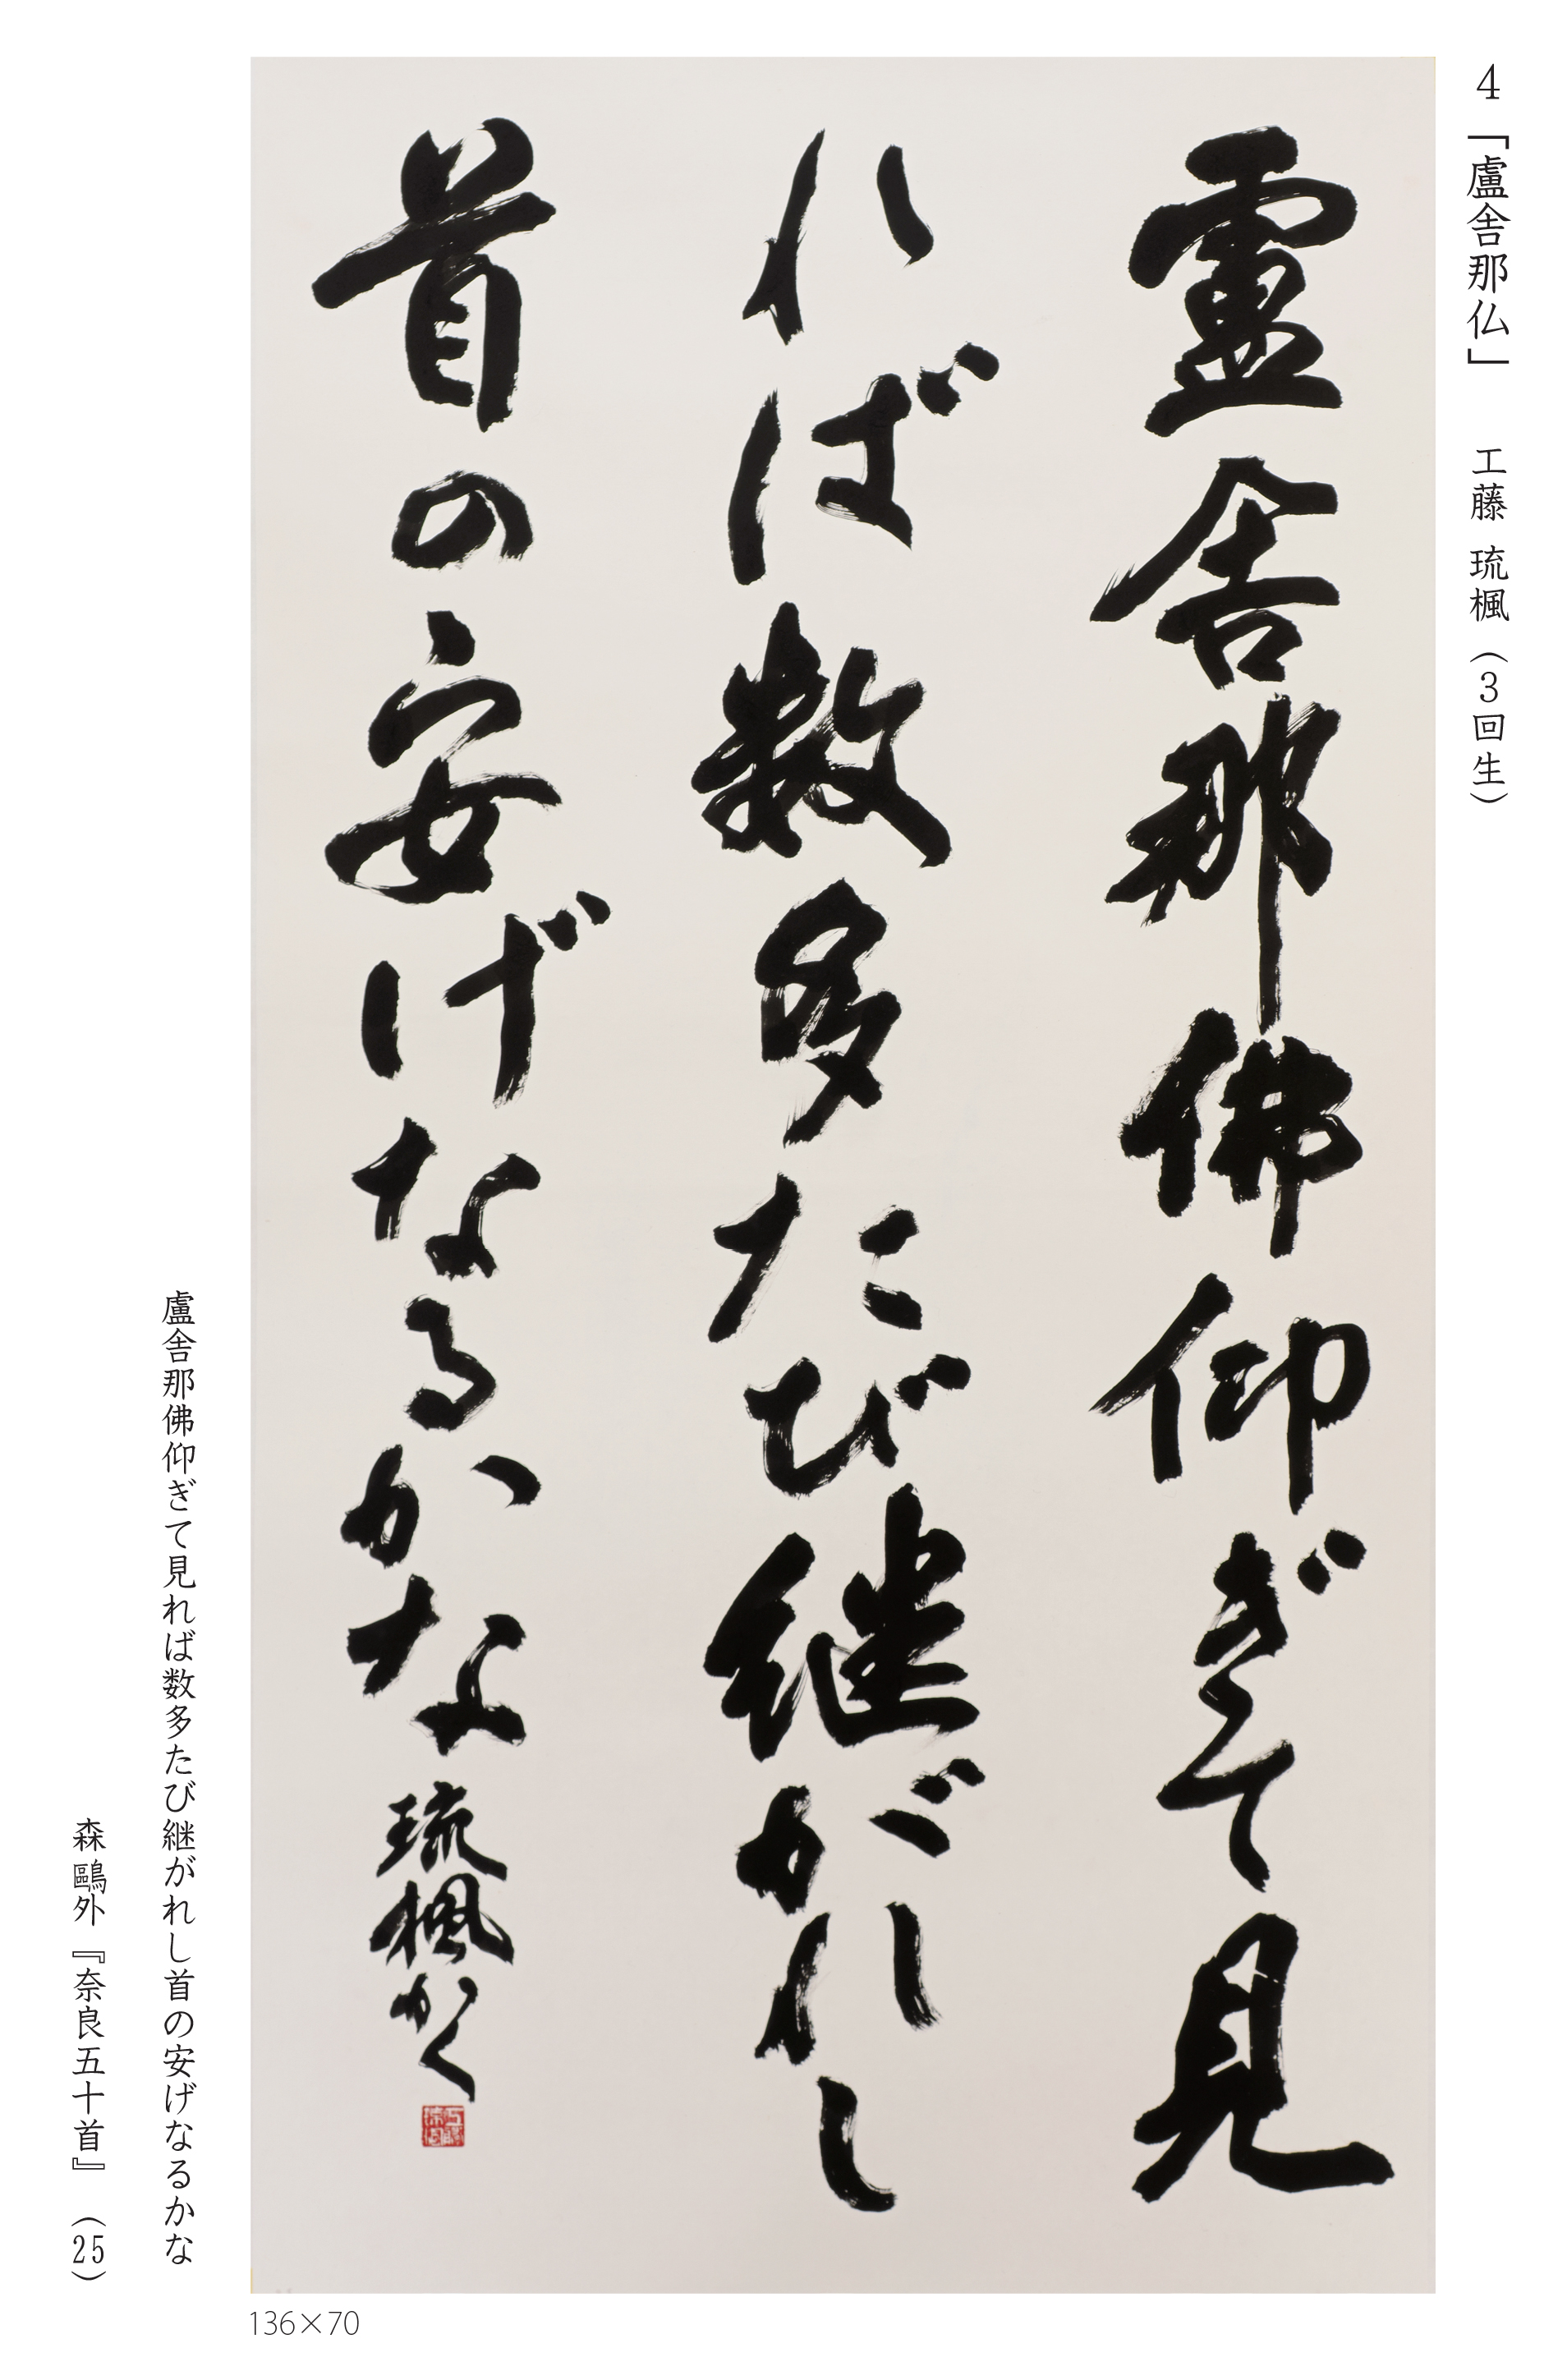 4 「盧舎那仏」 工藤 琉楓（3回生）
盧舎那佛仰ぎて見
れば数多たび継がれし
首の安げなるかな 琉楓かく
盧舎那佛仰ぎて見れば数多たび継がれし首の安げなるかな
森鷗外『奈良五十首』（25）
136×70